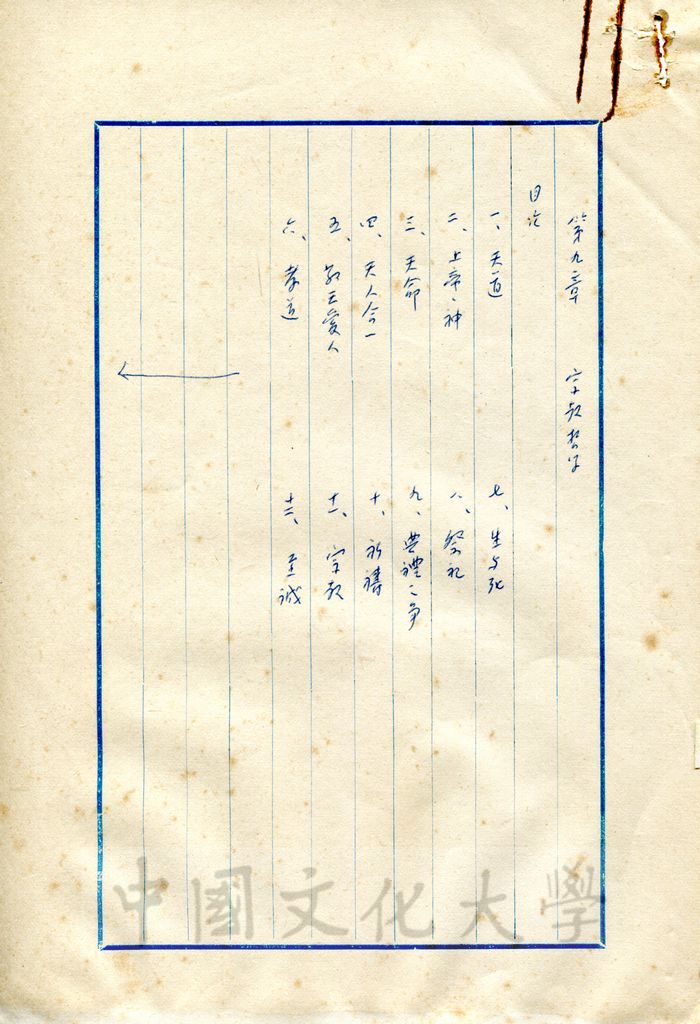 第九章　宗教哲学
目次
一、天道
二、上帝、神
三、天命
四、天人合一
五、敬天愛人
六、孝道
七、生与死
八、祭祀
九、典禮之爭
十、祈禱
十一、宗教
十二、至誠
中國文化大學